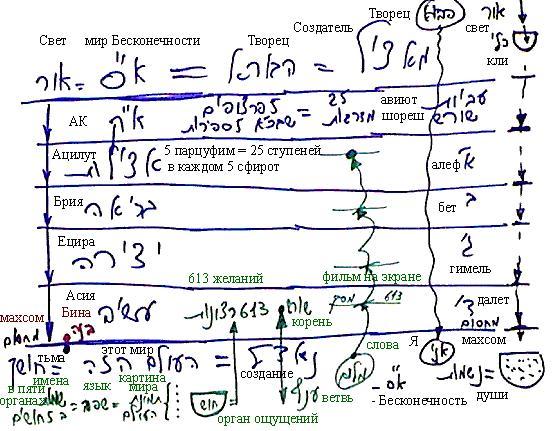 Творец אור
Создатель свет
Свет мир Бесконечности Творец כלי
кли
מאציל = הבורא = א"ס = אור
АК א"ק 25 מדרגות = авиют шореш עביות שורש
Ацилут אצילות 5 парцуфим = 25 ступеней
в каждом 5 сфирот алеф א'
Брия בריאה бет ב'
Ецира יצירה гимель ג'
613 желаний фильм на экране
Асия עשיה 613 רצונות שורש корень מסך 613 далет ד'
махсом Бина בינה
מחסום слова Я אני махсом מחסום
тьма этот мир создание
חושך = העולם הזה = נאצל מלים
имена картина
в пяти язык мира ветвь ענף - א"ס
органах שפה = תמונת העולם חוש - Бесконечность נשמות души
орган ощущений